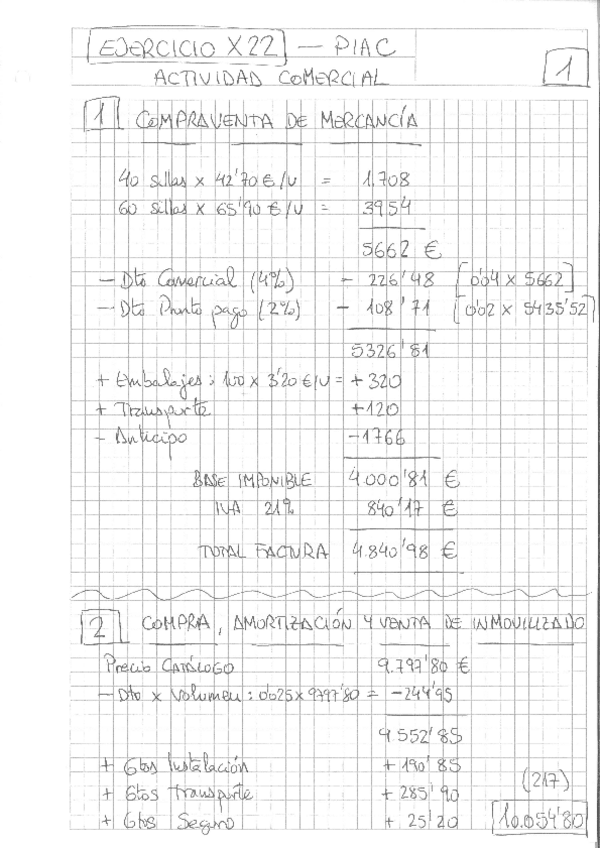 EJERCICIO X22 — PIAC
ACTIVIDAD COMERCIAL
1
1 COMPRAVENTA DE MERCANCÍA
40 sillas x 42'70 €/u = 1.708
60 sillas x 65'90 €/u = 3954
5662 €
- Dto Comercial (4%) - 226'48 [0'04 x 5662]
- Dto Pronto pago (2%) - 108'71 [0'02 x 5435'52]
5326'81
+ Embalajes: 100 x 3'20 €/u = + 320
+ Transporte +120
- Anticipo -1766
BASE IMPONIBLE 4.000'81 €
IVA 21% 840'17 €
TOTAL FACTURA 4.840'98 €
2 COMPRA, AMORTIZACIÓN Y VENTA DE INMOVILIZADO
Precio CATÁLOGO 9.797'80 €
- Dto x Volumen: 0'025 x 9797'80 = -244'95
9.552'85
+ Gtos Instalación + 190'85
+ Gtos transporte + 285'90 (217)
+ Gtos Seguro + 25'20 10.054'80